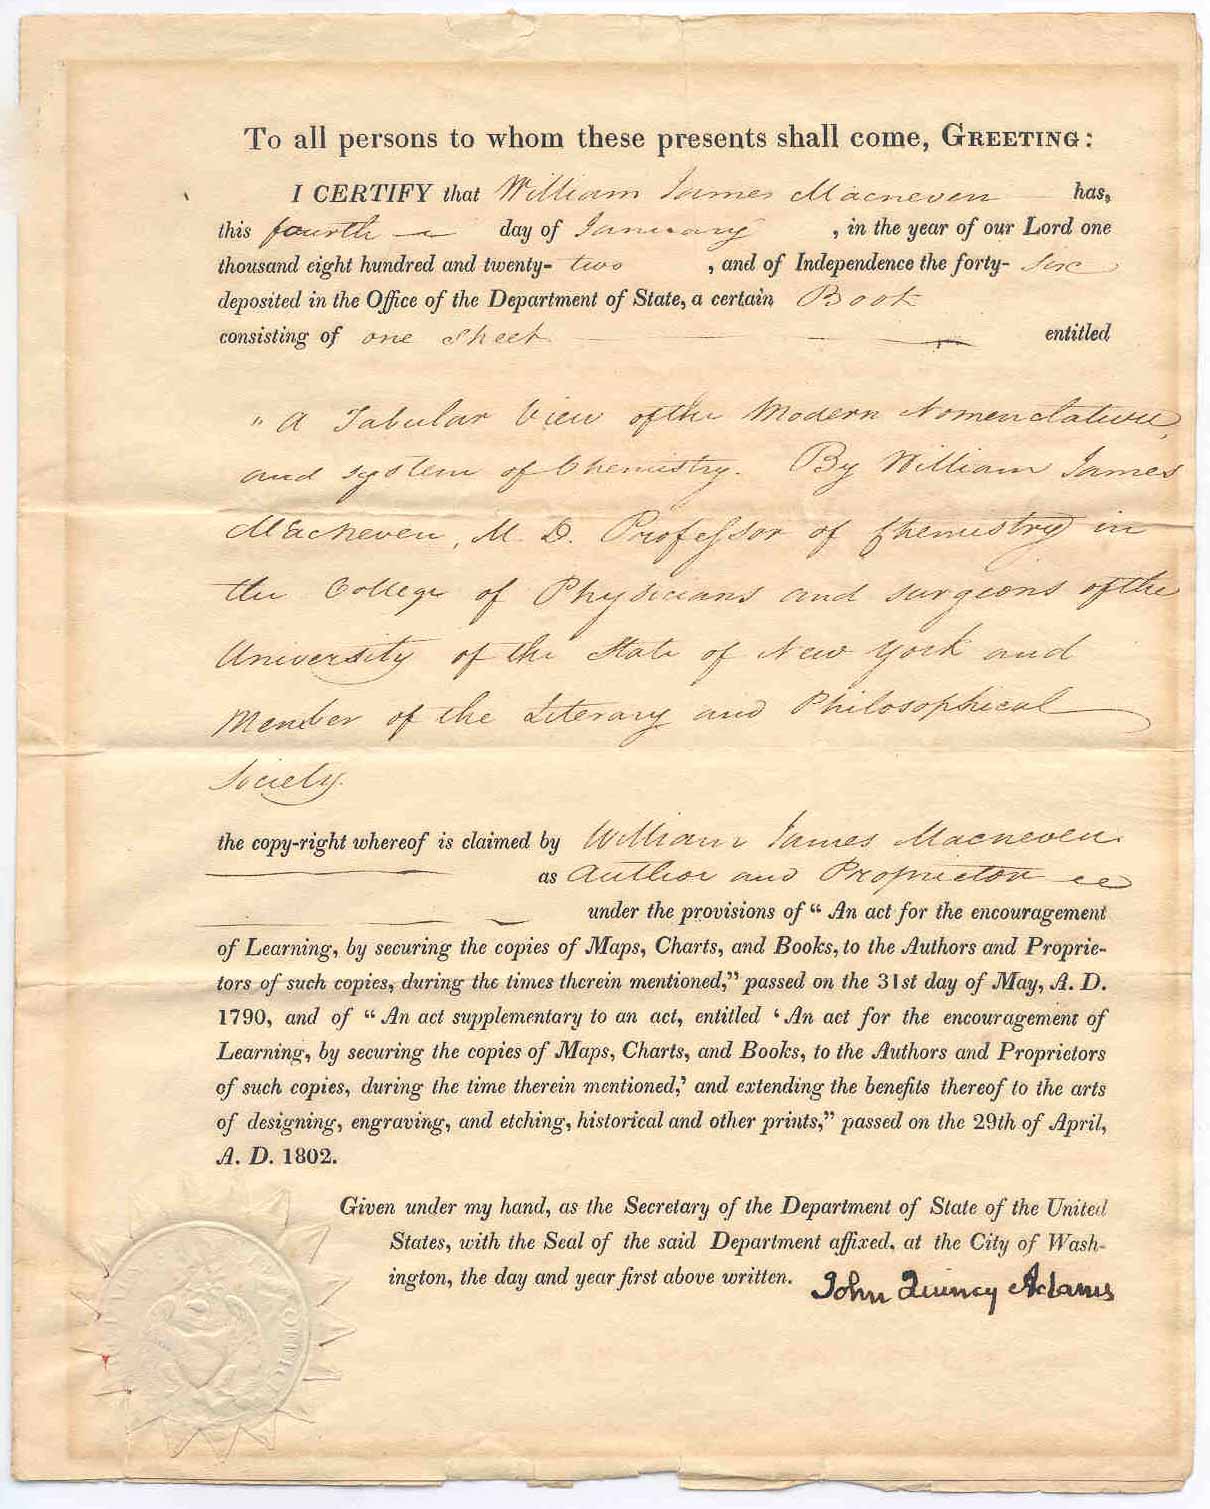 To all persons to whom these presents shall come, GREETING:
I CERTIFY that William James Macneven has,
this fourth day of January , in the year of our Lord one
thousand eight hundred and twenty- two , and of Independence the forty- six
deposited in the Office of the Department of State, a certain Book
consisting of one sheet entitled
" A Tabular View of the Modern Nomenclature,
and system of Chemistry. By William James
Macneven, M. D. Professor of Chemistry in
the College of Physicians and surgeons of the
University of the State of New York and
Member of the Literary and Philosophical
Society.
the copy-right whereof is claimed by William James Macneven.
as Author and Proprietor
under the provisions of “ An act for the encouragement
of Learning, by securing the copies of Maps, Charts, and Books, to the Authors and Proprie-
tors of such copies, during the times therein mentioned,” passed on the 31st day of May, A. D.
1790, and of “ An act supplementary to an act, entitled ‘ An act for the encouragement of
Learning, by securing the copies of Maps, Charts, and Books, to the Authors and Proprietors
of such copies, during the time therein mentioned,’ and extending the benefits thereof to the arts
of designing, engraving, and etching, historical and other prints,” passed on the 29th of April,
A. D. 1802.
Given under my hand, as the Secretary of the Department of State of the United
States, with the Seal of the said Department affixed, at the City of Wash-
ington, the day and year first above written. John Quincy Adams